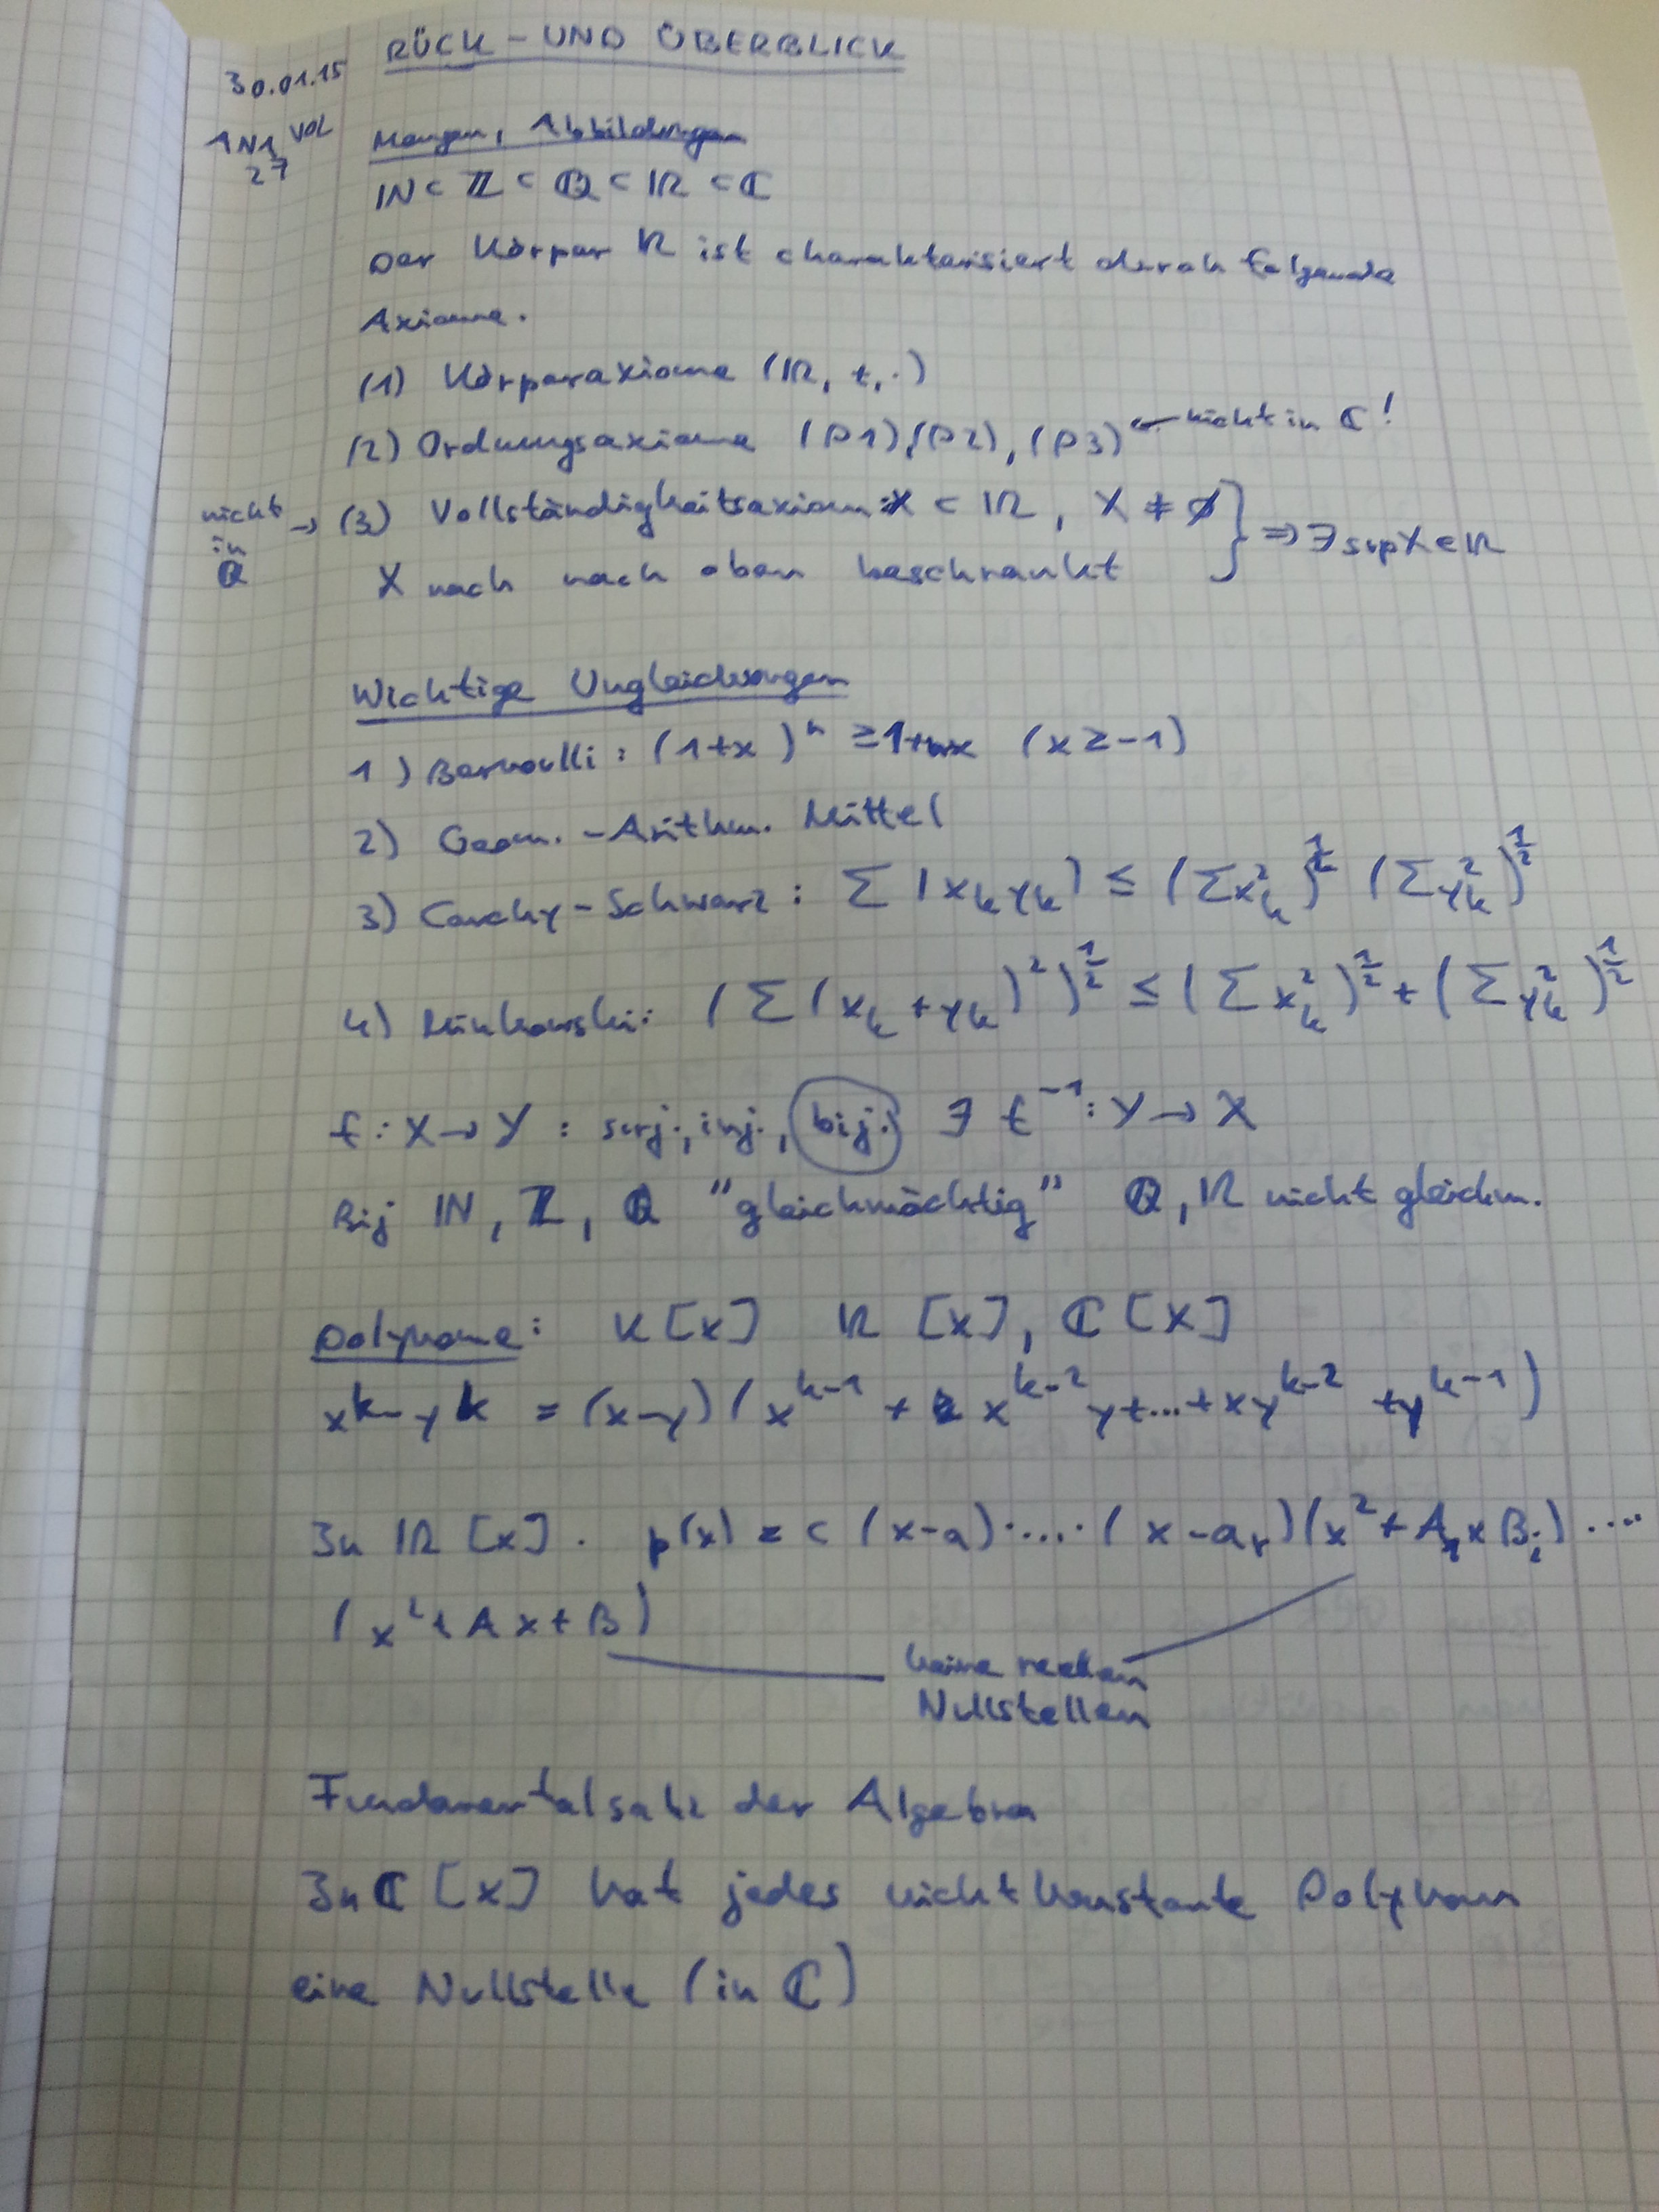 RÜCK-UND ÜBERBLICK
30.01.15
AN1 VOL
27
Mengen, Abbildungen
ℕ ⊂ ℤ ⊂ ℚ ⊂ ℝ ⊂ ℂ
Der Körper ℝ ist charakterisiert durch folgende
Axiome.
(1) Körperaxiome (ℝ, +, ·)
(2) Ordnungsaxiome (P1), (P2), (P3) ← nicht in ℂ!
nicht in ℚ → (3) Vollständigkeitsaxiom: X ⊂ ℝ, X ≠ ∅ } ⇒ ∃ sup X ∈ ℝ
X nach nach oben beschränkt
Wichtige Ungleichungen
1) Bernoulli: (1+x)^n ≥ 1+nx (x ≥ -1)
2) Geom. - Arithm. Mittel
3) Cauchy-Schwarz: ∑ |x_k y_k| ≤ (∑ x_k^2)^{1/2} (∑ y_k^2)^{1/2}
4) Minkowski: (∑ (x_k + y_k)^2)^{1/2} ≤ (∑ x_k^2)^{1/2} + (∑ y_k^2)^{1/2}
f: X → Y : surj., inj., bij. ∃ f^{-1}: Y → X
Bij ℕ, ℤ, ℚ "gleichmächtig" ℚ, ℝ nicht gleichm.
Polynome: K[x] ℝ[x], ℂ[x]
x^k - y^k = (x-y)(x^{k-1} + x^{k-2}y + ... + xy^{k-2} + y^{k-1})
In ℝ[x]. p(x) = c (x-a)·....·(x-a_r)(x^2 + A_1 x B_1) ....
(x^2 + Ax + B)
keine reellen
Nullstellen
Fundamentalsatz der Algebra
In ℂ[x] hat jedes nicht konstante Polynom
eine Nullstelle (in ℂ)